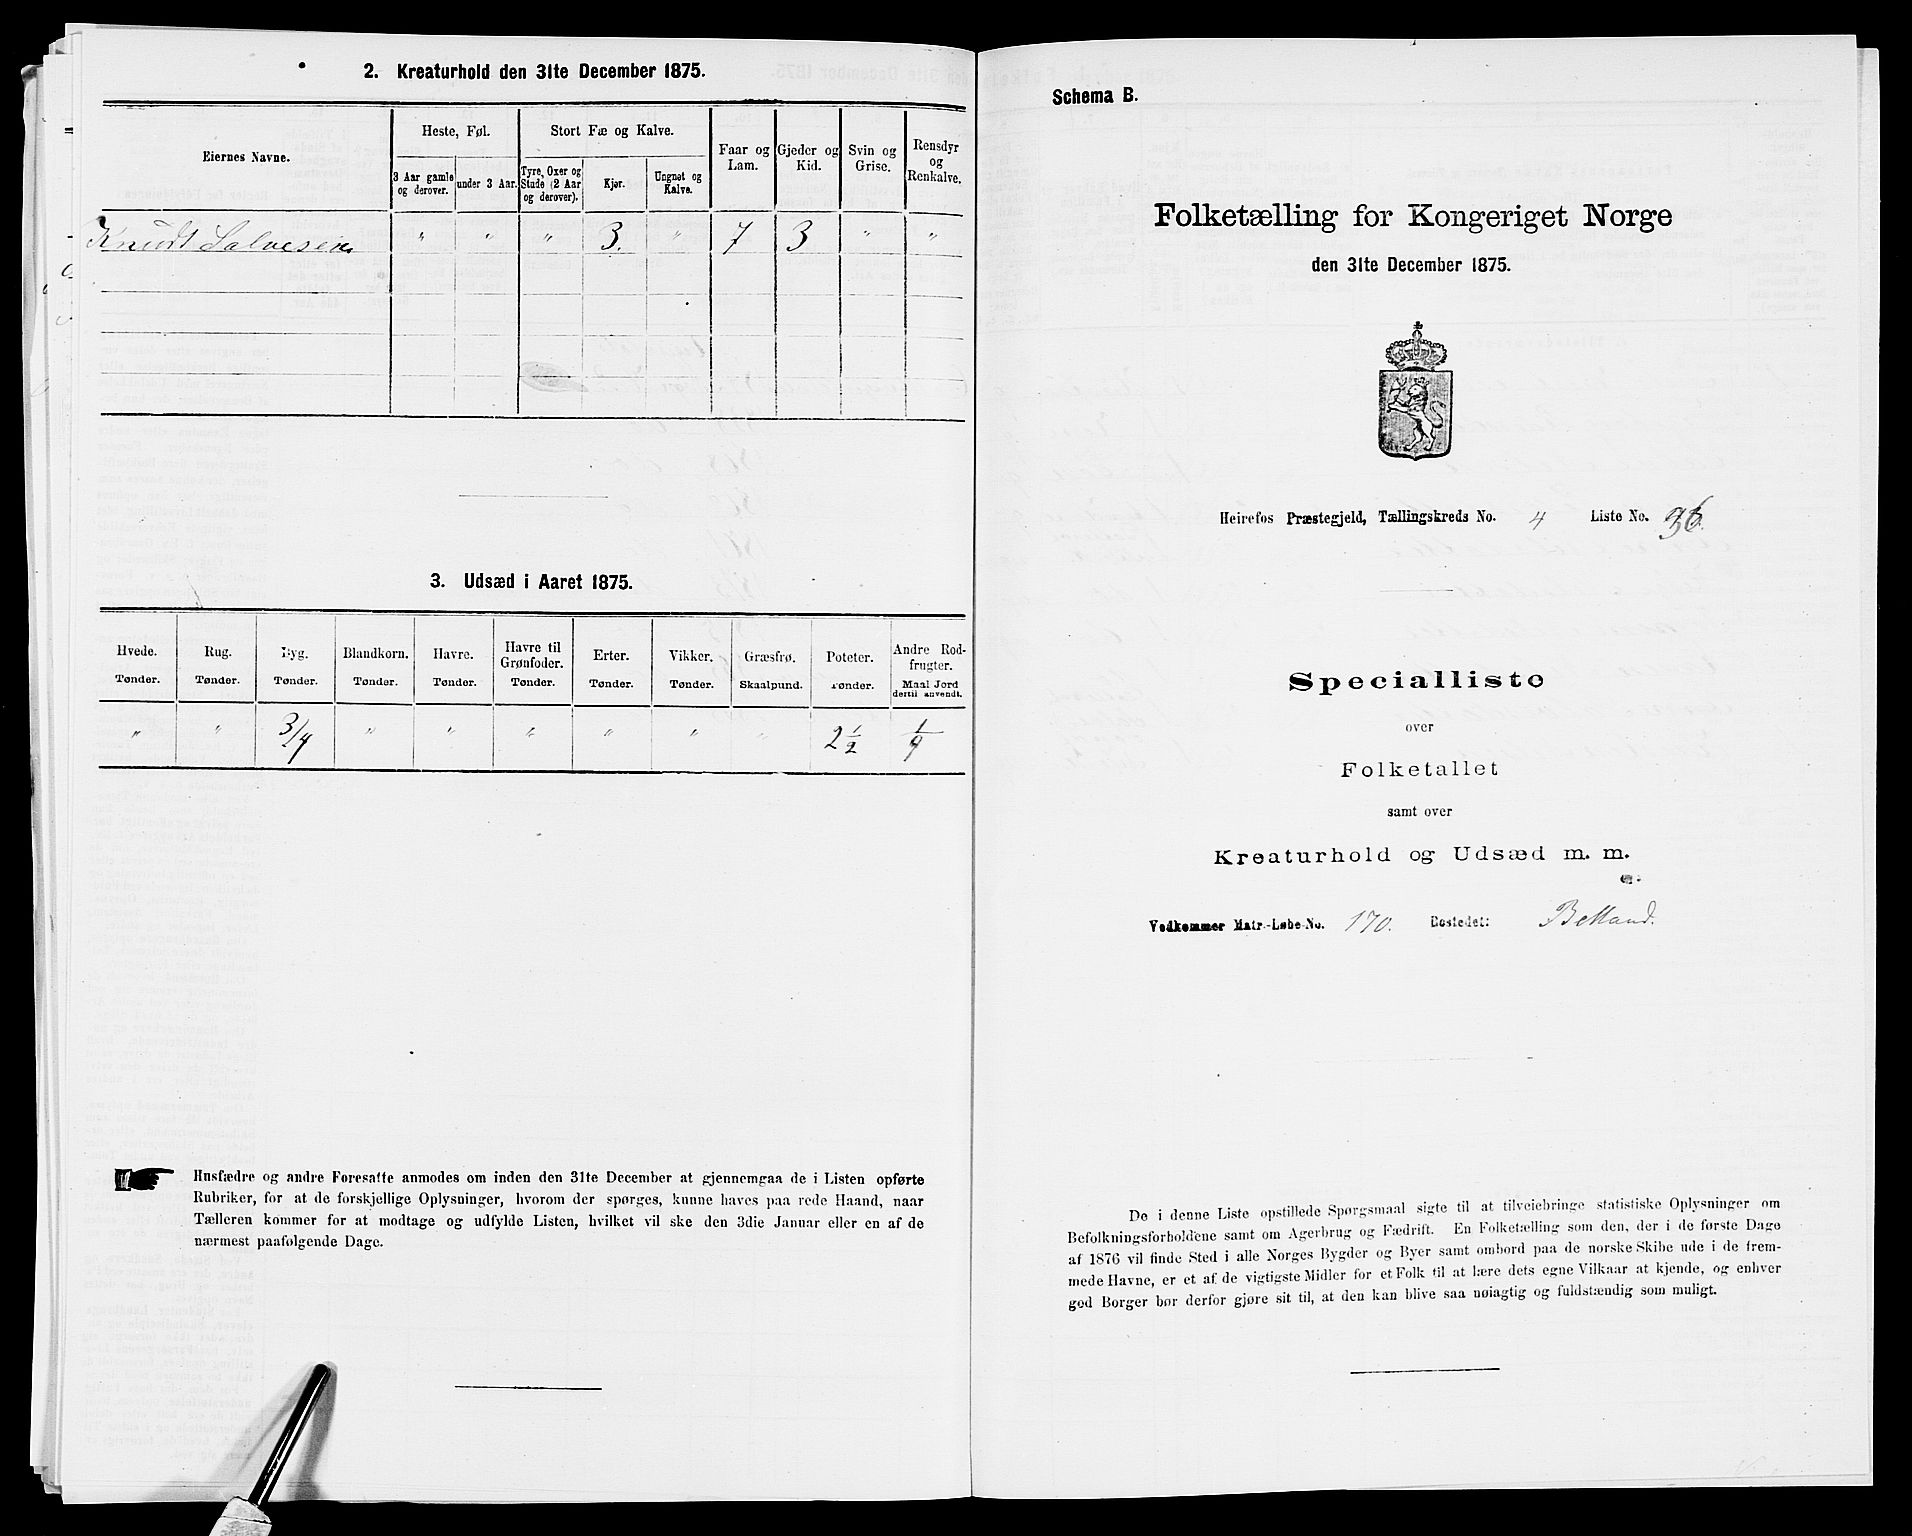 2. Kreaturhold den 31te December 1875.
Eiernes Navne.
Heste, Føl.
Stort Fæ og Kalve.
Faar og Lam.
Gjeder og Kid.
Svin og Grise.
Rensdyr og Renkalve.
3 Aar gamle og derover.
under 3 Aar.
Tyre, Oxer og Stude (2 Aar og derover).
Kjør.
Ungnøt og Kalve.
Knudt Salvesen " " " 3. " 7 3 " "
3. Udsæd i Aaret 1875.
Hvede. Tønder.
Rug. Tønder.
Byg. Tønder.
Blandkorn. Tønder.
Havre. Tønder.
Havre til Grønfoder. Tønder.
Erter. Tønder.
Vikker. Tønder.
Græsfrø. Skaalpund.
Poteter. Tønder.
Andre Rodfrugter. Maal Jord dertil anvendt.
" " 3/4 " " " " " " 2 1/2
Husfædre og andre Foresatte anmodes om inden den 31te December at gjennemgaa de i Listen opførte
Rubriker, for at de forskjellige Oplysninger, hvorom der spørges, kunne haves paa rede Haand, naar
Tælleren kommer for at modtage og udfylde Listen, hvilket vil ske den 3die Januar eller en af de
nærmest paafølgende Dage.
Schema B.
Folketælling for Kongeriget Norge
den 31te December 1875.
Heirefos Præstegjeld, Tællingskreds No. 4 Liste No. 36.
Specialliste
over
Folketallet
samt over
Kreaturhold og Udsæd m. m.
Vedkommer Matr.-Løbe-No. 170. Bostedet:
De i denne Liste opstillede Spørgsmaal sigte til at tilveiebringe statistiske Oplysninger om
Befolkningsforholdene samt om Agerbrug og Fædrift. En Folketælling som den, der i de første Dage
af 1876 vil finde Sted i alle Norges Bygder og Byer samt ombord paa de norske Skibe ude i de frem-
mede Havne, er et af de vigtigste Midler for et Folk til at lære dets egne Vilkaar at kjende, og enhver
god Borger bør derfor gjøre sit til, at den kan blive saa nøiagtig og fuldstændig som muligt.